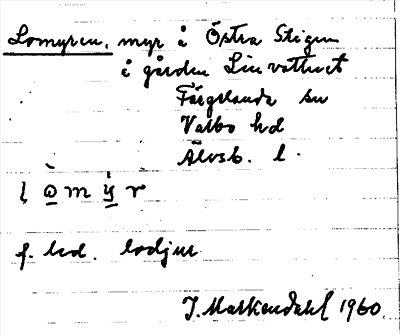 Lomyren, myr å Östra Stigen
å gården Linvattnet
Färgelanda sn
Valbo hd
Älvsb. l.
l o m y r
f. led. lodjur
J. Markendahl 1960.